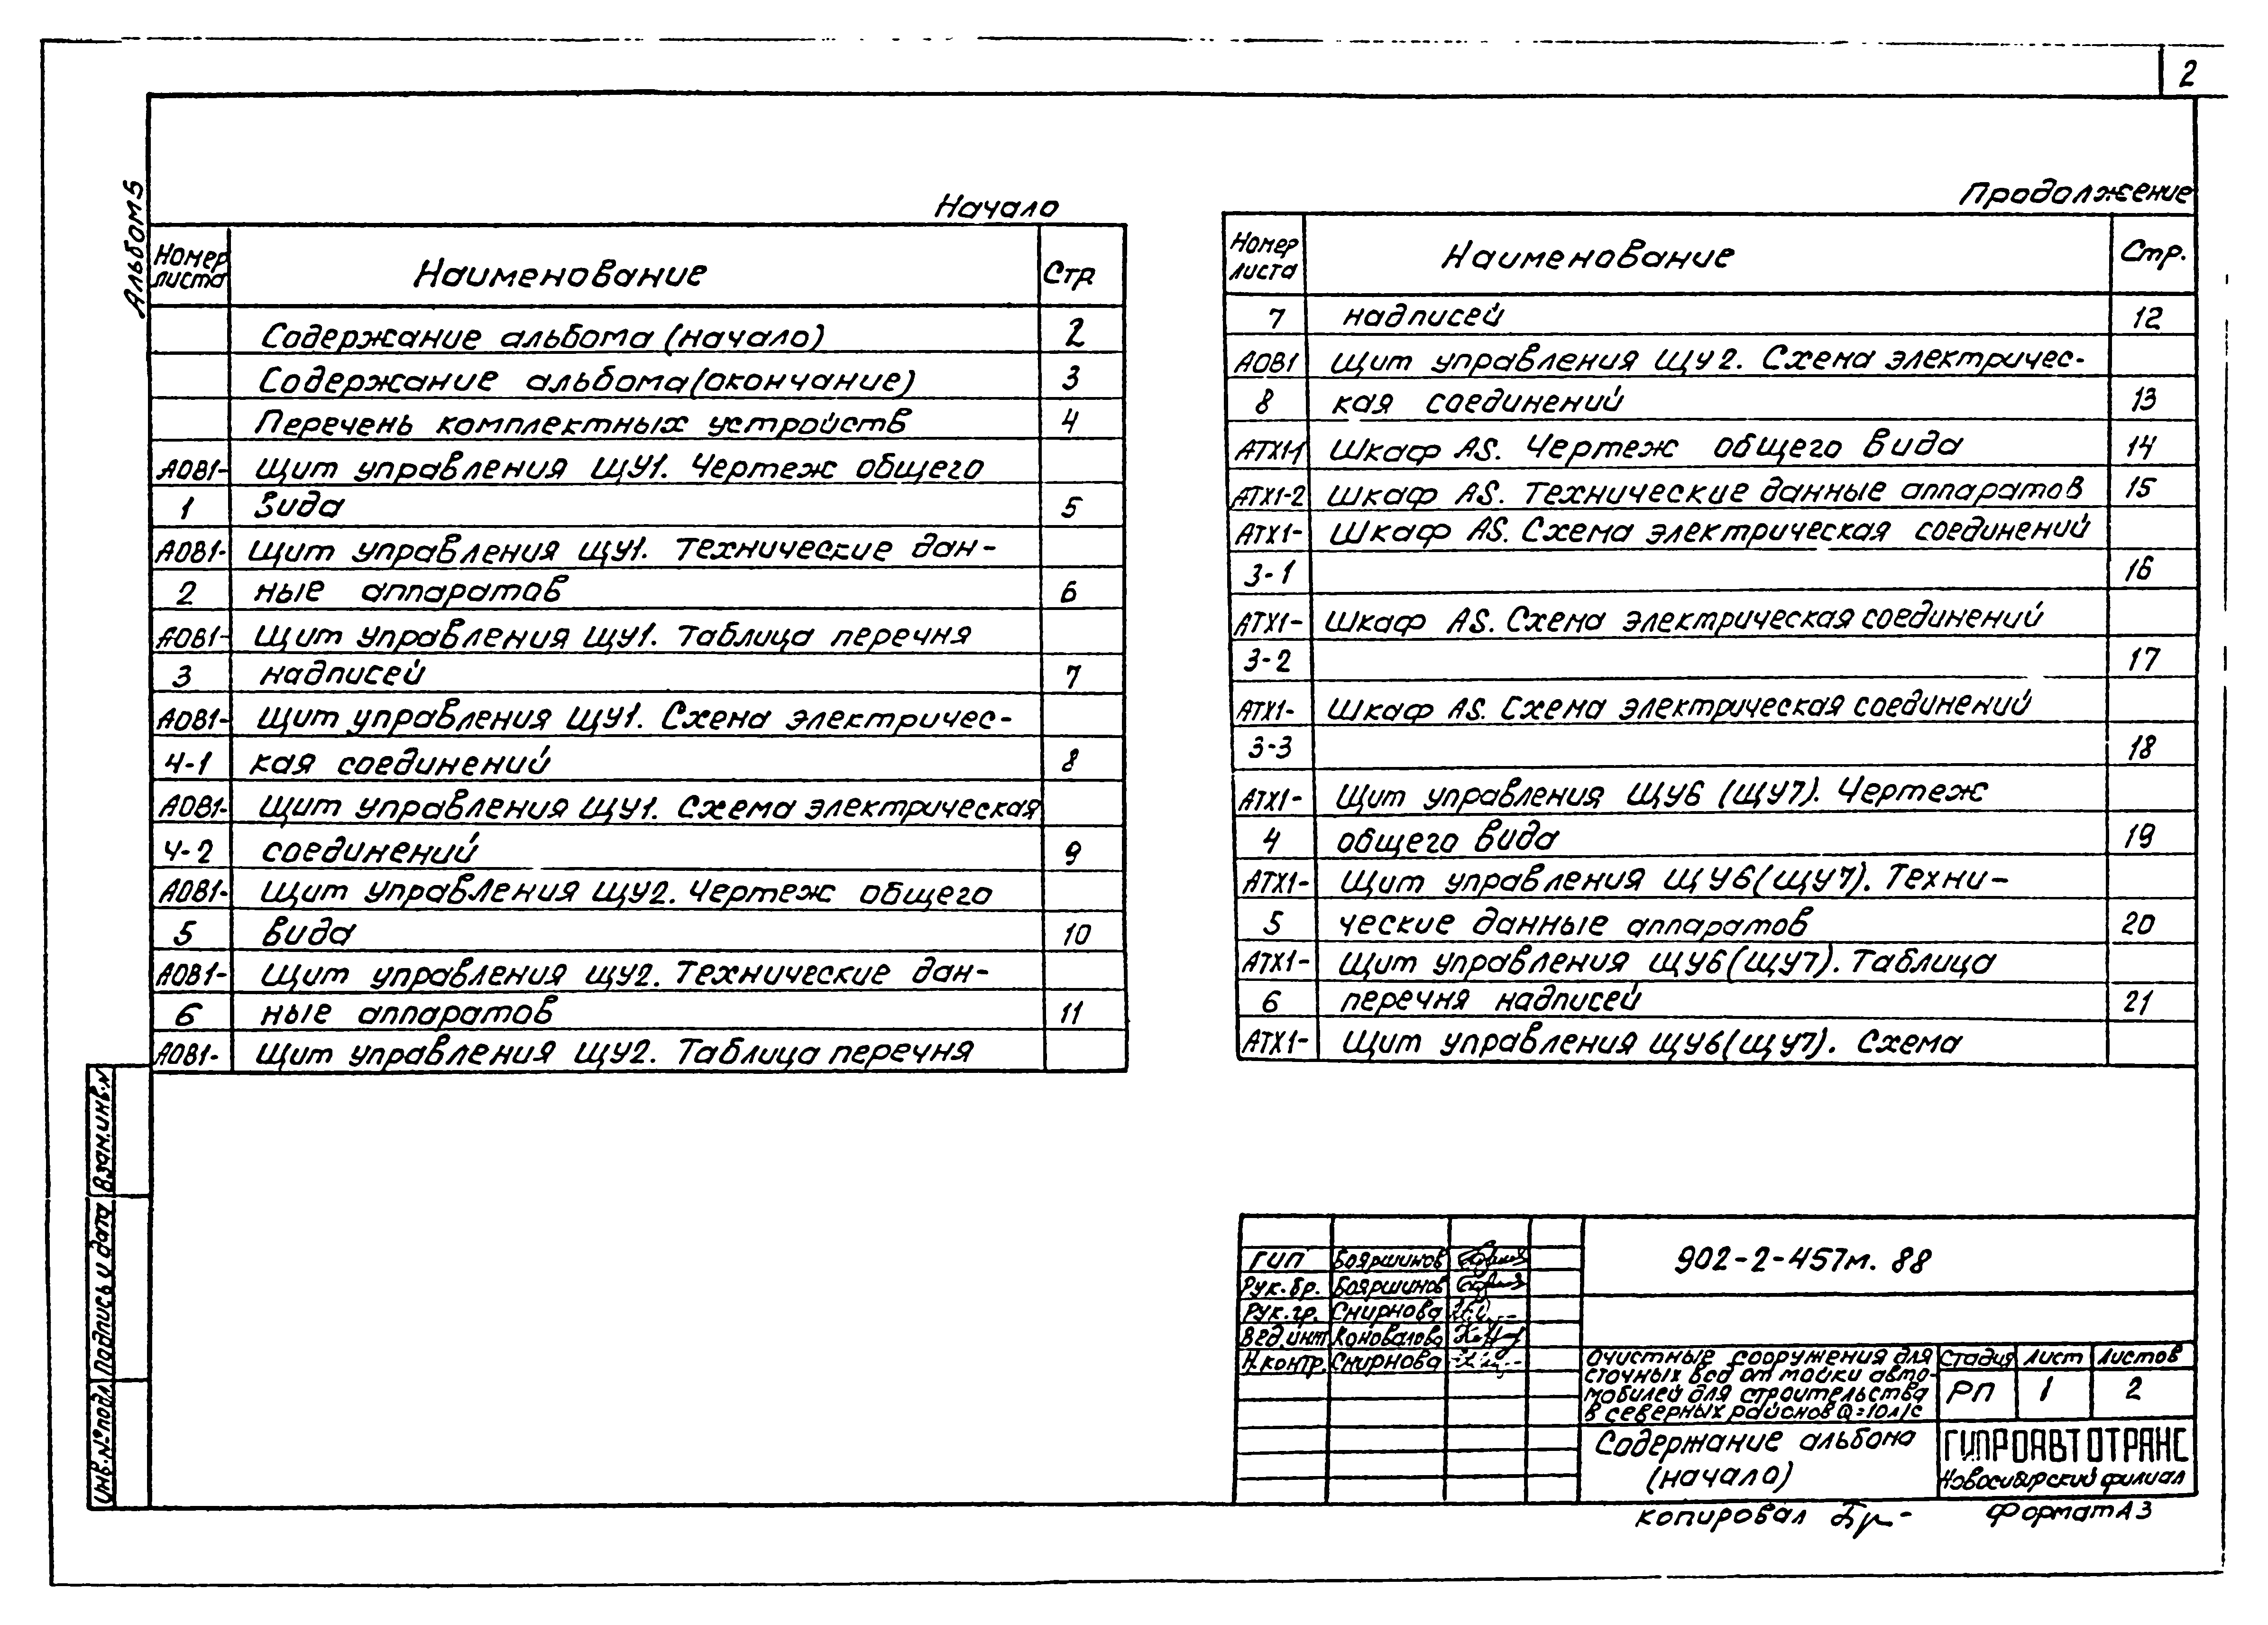 2
Альбом 5
Начало
Номер листа Наименование Стр
Содержание альбома (начало) 2
Содержание альбома (окончание) 3
Перечень комплектных устройств 4
АОВ1- Щит управления ЩУ1. Чертеж общего
1 вида 5
АОВ1- Щит управления ЩУ1. Технические дан-
2 ные аппаратов 6
АОВ1- Щит управления ЩУ1. Таблица перечня
3 надписей 7
АОВ1- Щит управления ЩУ1. Схема электричес-
4-1 кая соединений 8
АОВ1- Щит управления ЩУ1. Схема электрическая
4-2 соединений 9
АОВ1- Щит управления ЩУ2. Чертеж общего
5 вида 10
АОВ1- Щит управления ЩУ2. Технические дан-
6 ные аппаратов 11
АОВ1- Щит управления ЩУ2. Таблица перечня
Продолжение
Номер листа Наименование Стр.
7 надписей 12
АОВ1 Щит управления ЩУ2. Схема электричес-
8 кая соединений 13
АТХ1-1 Шкаф AS. Чертеж общего вида 14
АТХ1-2 Шкаф AS. Технические данные аппаратов 15
АТХ1- Шкаф AS. Схема электрическая соединений
3-1 16
АТХ1- Шкаф AS. Схема электрическая соединений
3-2 17
АТХ1- Шкаф AS. Схема электрическая соединений
3-3 18
АТХ1- Щит управления ЩУ6 (ЩУ7). Чертеж
4 общего вида 19
АТХ1- Щит управления ЩУ6 (ЩУ7). Техни-
5 ческие данные аппаратов 20
АТХ1- Щит управления ЩУ6 (ЩУ7). Таблица
6 перечня надписей 21
АТХ1- Щит управления ЩУ6 (ЩУ7). Схема
Взам.инв.N
Подпись и дата
Инв.№подл.
902-2-457м. 88
ГИП Бояршинов
Рук.бр. Бояршинов
Рук.гр. Смирнова
Вед.инж Коновалова
Н.контр. Смирнова
Очистные сооружения для
сточных вод от мойки авто-
мобилей для строительства
в северных районов Q=10л/с
Стадия Лист Листов
РП 1 2
Содержание альбома
(начало)
ГИПРОАВТОТРАНС
Новосибирский филиал
копировал
Формат А3